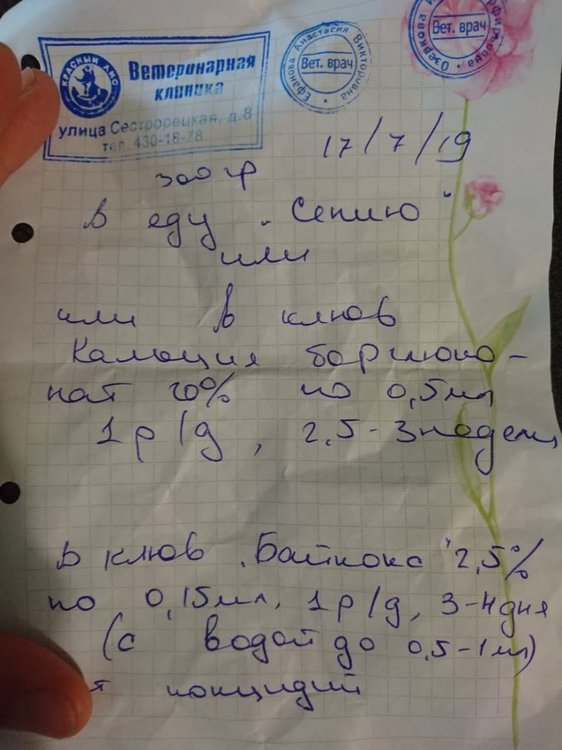 КРАСНЫЙ
Ветеринарная
клиника
улица Сестрорецкая, д.8
тел. 430-18-78
Ефанова Анастасия Викторовна
Вет. врач
Озеркова
Вет. врач
17/7/19
300 гр
В еду "Сепию"
или
или в клюв
Кальция борглюко-
нат 20% по 0,5мл
1р/д, 2,5-3недели
В клюв "Байкокс" 2,5%
по 0,15мл, 1р/д, 3-4дня
(с водой до 0,5-1мл)
кокцидий